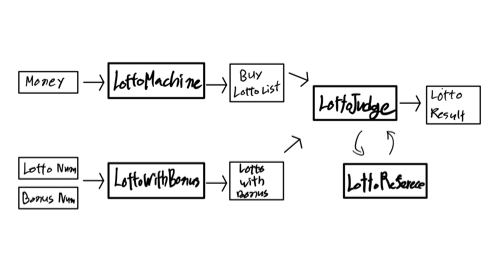 Money
LottoMachine
Buy
LottoList
LottoJudge
Lotto
Result
Lotto Num
Bonus Num
LottoWithBonus
Lotto
with
Bonus